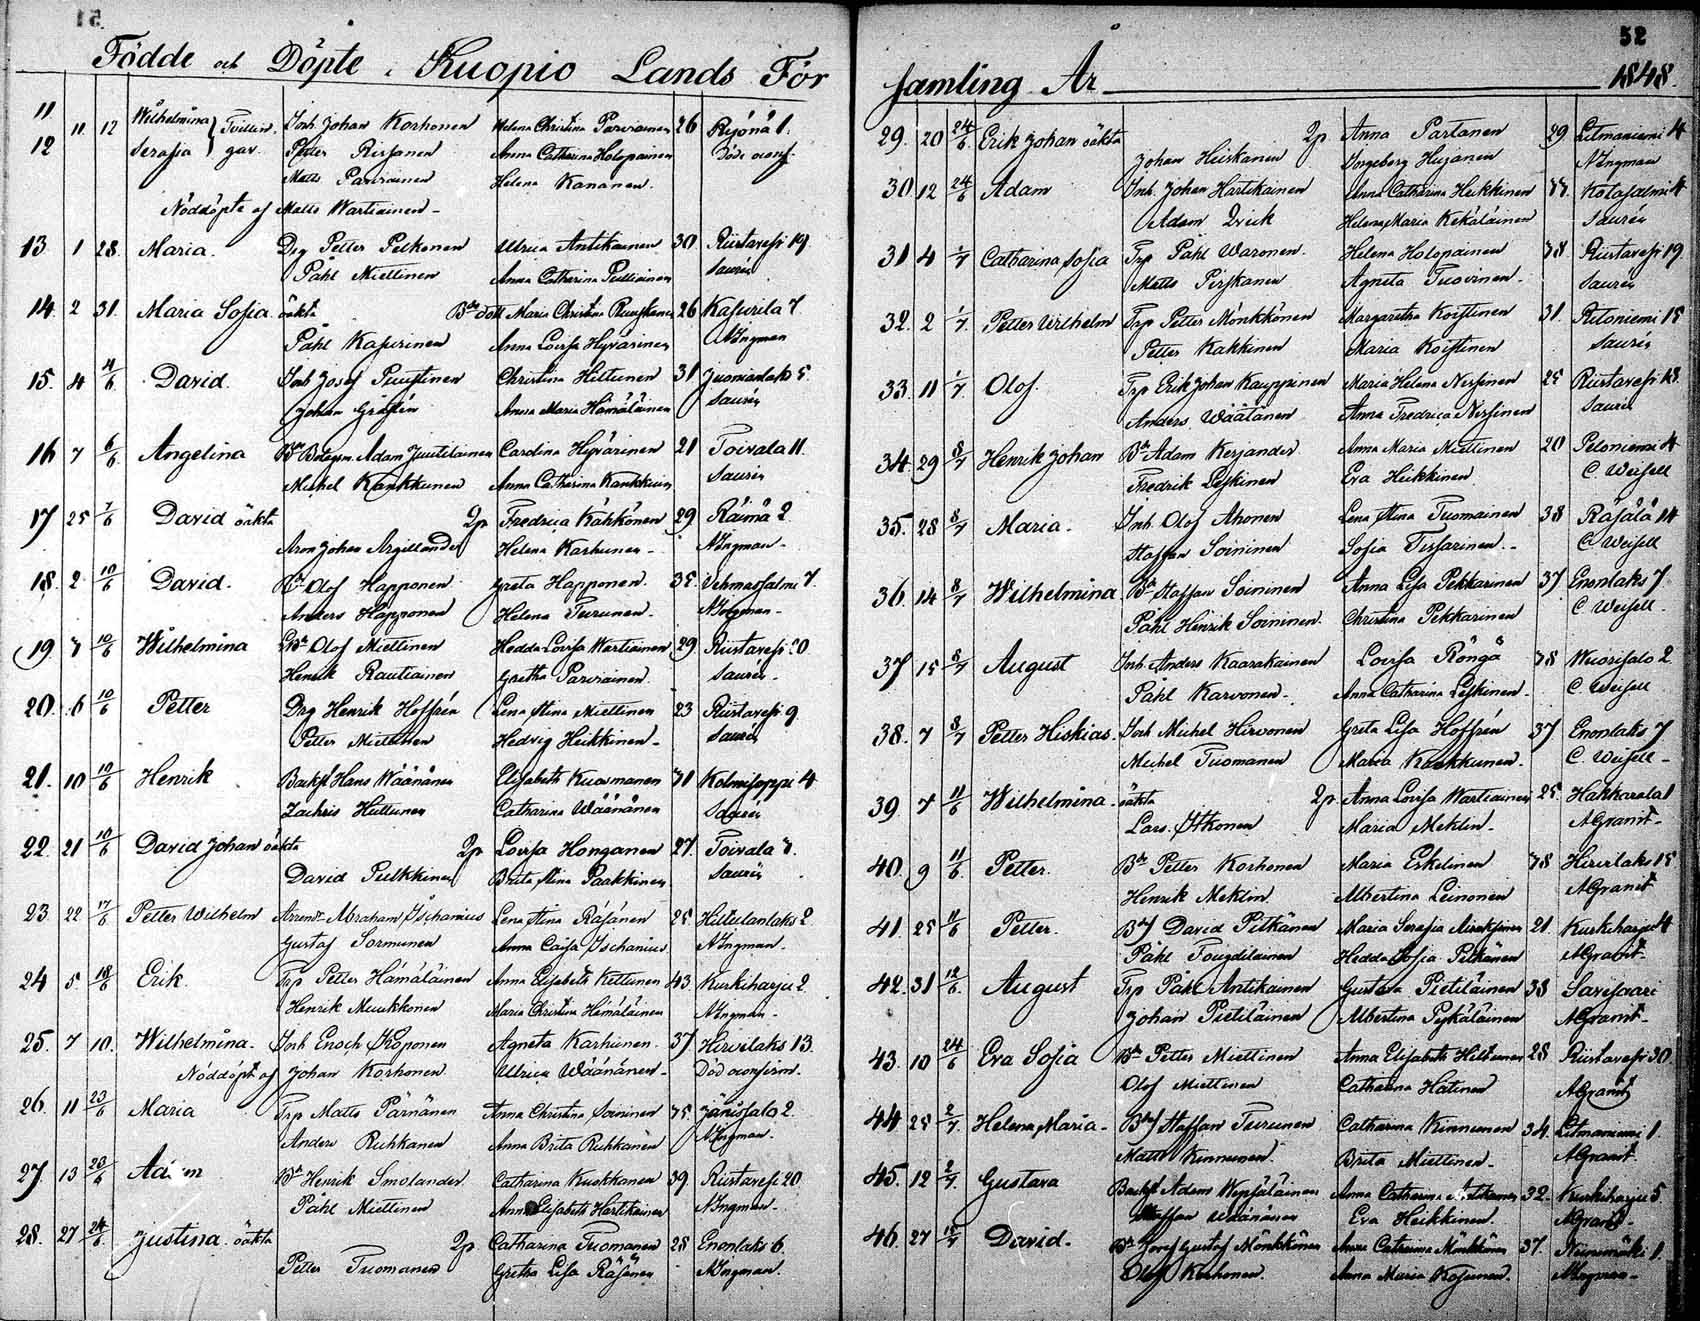 51
Födde och Döpte i Kuopio Lands För
11 11 12 Wilhelmina } Tvillin. Inh. Johan Korhonen Helena Christina Parviainen 26 Ryönä 1.
12 Serafia gar. Petter Rissanen Anna Catharina Holopainen Böde oconf.
Matts Parviainen Helena Kananen.
Nöddöpte af Matts Wartiainen
13 1 28 Maria. Drg Petter Pelkonen Ulrica Antikainen 30 Riistavesi 19.
Påhl Miettinen Anna Catharina Saurén
14. 2 31. Maria Sofia oäkta Bde dott Maria Christina 26 Kasurila 7.
Påhl Kasurinen Anna Lovisa Hyvärinen AIngman
15. 4 4/6 David. Inh Josef Puustinen Christina Hiltunen 31 5.
Johan Anna Maria Hämäläinen Saurén
16 7 6/6 Angelina Bolagsm. Adam Juutilainen Carolina Hyvärinen 21 Toivala 11.
Michel Kankkunen Anna Catharina Kankkunen Saurén
17 25 7/6 David oäkta 2p Fredrica Kähkönen 29 Räimä 2.
Aron Johan Argillander Helena Karhunen AIngman
18. 2 10/6 David. Bd Olof Happonen Greta Happonen. 35. Vehmassalmi 7.
Anders Happonen Helena Turunen. AIngman
19. 7 10/6 Wilhelmina Bd Olof Miettinen Hedda Lovisa Wartiainen 29 Riistavesi 20.
Henrik Rautiainen Gretha Parviainen. Saurén
20. 6 10/6 Petter Drg Henrik Hoffrén Lena Stina Miettinen 23 Riistavesi 9.
Petter Miettinen Hedvig Heikkinen Saurén
21. 10 10/6 Henrik Backst Hans Wäänänen Elisabeth Kuosmanen 31 Kolmisoppi 4
Zachris Huttunen Catharina Wäänänen Saurén
22. 21 10/6 David Johan oäkta 2p Lovisa Honganen 27. Toivala 7.
David Pulkkinen Brita Stina Paakkinen Saurén
23. 22 17/6 Petter Wilhelm Arrend. Abraham Ischanius Lena Stina Räsänen 25. Hiltulanlaks 2.
Gustaf Sormunen Anna Caisa Ischanius AIngman
24 5 18/6 Erik. Trp Petter Hämäläinen Anna Elisabeth Kettunen 43 Kurkiharju 2.
Henrik Muukkonen Maria Christina Hämäläinen AIngman
25. 7 10. Wilhelmina. Inh Enoch Roponen Agneta Karhunen. 37 Hirvilaks 13.
Nöddöpt af Johan Korhonen. Ulrica Wäänänen Död oconfirm.
26. 11 23/6 Maria Trp Matts Pärnänen Anna Christina Soininen 35 Jänissalo 2.
Anders Ruhkanen Anna Brita Ruhkanen AIngman.
27. 13 23/6 Adam Bd Henrik Smolander. Catharina Kuokkanen 39. Riistavesi 20.
Påhl Miettinen Anna Elisabeth Hartikainen AIngman
28. 27 24/6 Justina. oäkta 2p Catharina Tuomanen 28 Enonlaks 6.
Petter Tuomanen Gretha Lisa Räsänen AIngman.
52
samling År 1848.
29. 20 24/6 Erik Johan oäkta 2p Anna Partanen 29 Litmaniemi 4
Johan Heiskanen Ingeborg Hujanen AIngman
30. 12 24/6 Adam Inh. Johan Hartikainen Anna Catharina Heikkinen Kotasalmi 4
Adam Helena Maria Kekäläinen Saurén
31. 4 1/7 Catharina Sofia Trp Påhl Waronen. Helena Holopainen 38 Riistavesi 19.
Matts Pirskanen Agneta Tuovinen. Saurén
32. 2 1/7 Petter Wilhelm Trp Petter Mönkkönen Margaretha Koistinen 31. 15
Petter Kakkinen Maria Koistinen Saurén
33. 11 1/7 Olof. Trp Erik Johan Kauppinen Maria Helena Nissinen 25 Riistavesi 13.
Anders Wäätänen Anna Fredrica Nissinen Saurén
34. 29 8/7 Henrik Johan Bd Adam Kerjander Anna Maria Miettinen 20 Peloniemi 4
Fredrik Leskinen Eva Heikkinen C Weisell
35. 28 8/7 Maria. Inh. Olof Ahonen Lena Stina Tuomainen 38 Räsälä 14
Staffan Soininen Sofia Tissarinen C Weisell
36. 14 8/7 Wilhelmina Bd Staffan Soininen Anna Lisa Pekkarinen 37 Enonlaks 7
Påhl Henrik Soininen. Christina Pekkarinen C Weisell
37 15 8/7 August Inh. Anders Kaarakainen Lovisa Röngä 38 Wuorisalo 2.
Påhl Karvonen Anna Catharina Leskinen C. Weisell
38. 7 8/7 Petter Hiskias. Inh Michel Hirvonen Greta Lisa Hoffrén 37 Enonlaks 7
Michel Tuomanen Maria Kuokkanen. C. Weisell
39. 7 11/6 Wilhelmina oäkta 2p. Anna Lovisa Wartiainen 25. Hakkarala 1
Lars Itkonen Maria Meklin AGranit
40. 9 11/6 Petter. Bd Petter Korhonen Maria Eskelinen 38 Hirvilaks 15
Henrik Meklin. Albertina Leinonen AGranit
41. 25 11/6 Petter. By David Pitkänen Maria Serafia 21. Kurkiharju 4
Påhl Fougdilainen Hedda Sofia Pitkänen AGranit
42. 31 12/6 August Trp Påhl Antikainen Gustava Pietiläinen 38 Savisaari
Johan Pietiläinen Albertina Pyykäläinen AGranit
43. 10 24/6 Eva Sofia Bd Petter Miettinen Anna Elisabeth Hiltunen 28 Riistavesi 30
Olof Miettinen Catharina Hätinen AGranit
44 25 2/7 Helena Maria By Staffan Turunen Catharina Kinnunen 34. Litmaniemi 1.
Matts Kinnunen. Brita Miettinen AGranit
45. 12 2/7 Gustava Backst Adam Anna Catharina Antikainen 32. Kurkiharju 5.
Staffan Wäänänen Eva Heikkinen. AGranit
46. 27 15/7 David. Bd Josef Gustaf Mönkkönen Anna Catharina Mönkkönen 37. Niinimäki 1.
Olof Korhonen. Anna Maria Kosunen. AIngman